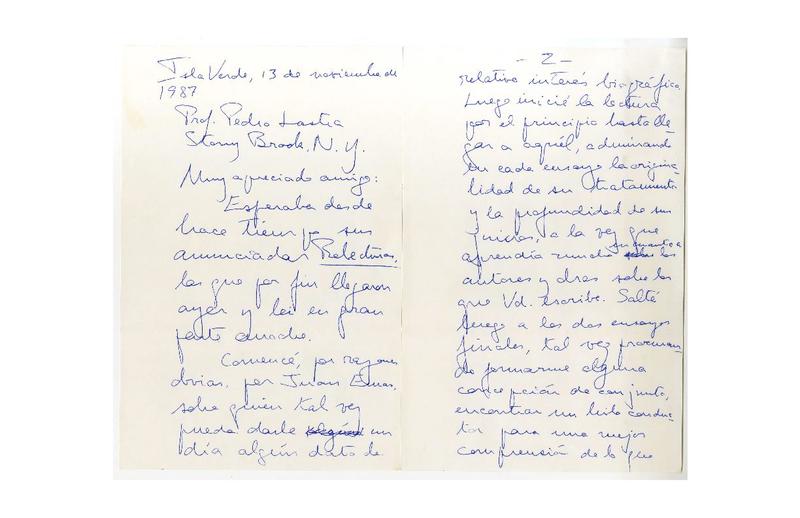 Isla Verde, 13 de noviembre de
1987
Prof. Pedro Lastra
Stony Brook, N. Y.
Muy apreciado amigo:
Esperaba desde
hace tiempo sus
anunciadas Relecturas,
las que por fin llegaron
ayer y leí en gran
parte anoche.
Comencé, por razones
obvias, por Juan Emar,
sobre quien tal vez
pueda darle un
día algún dato de
- 2 -
relativo interés biográfico.
Luego inicié la lectura
por el principio hasta lle-
gar a aquél, admirando
en cada ensayo la origina-
lidad de su tratamiento
y la profundidad de sus
juicios, a la vez que
aprendía mucho en cuanto a los
autores y obras sobre los
que Vd. escribe. Salté
luego a los dos ensayos
finales, tal vez procuran-
do formarme alguna
concepción de conjunto,
encontrar un hilo conduc-
tor para una mejor
comprensión de lo que